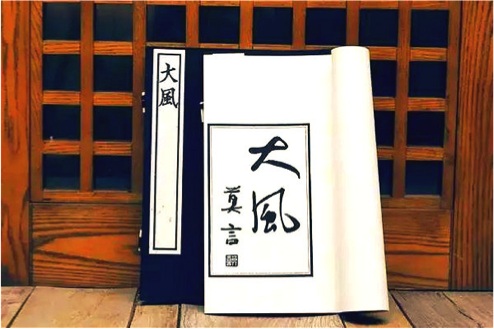 大風
大風
莫言